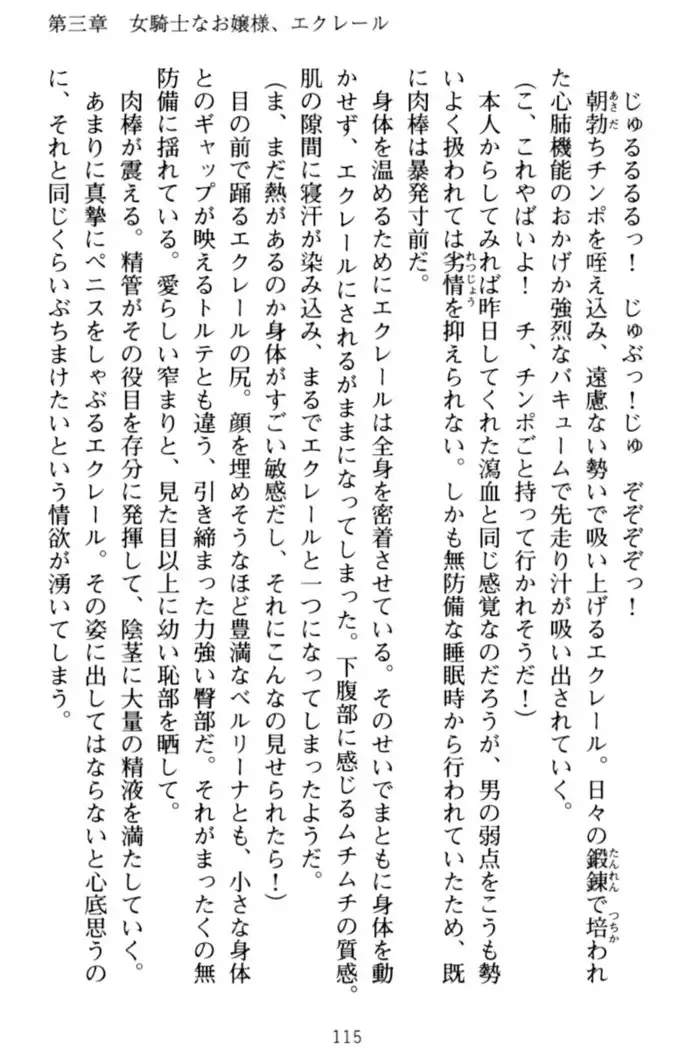 第三章　女騎士なお嬢様、エクレール
じゅるるるるっ！　じゅぶっ！じゅ　ぞぞぞぞっ！
朝勃ちチンポを咥え込み、遠慮ない勢いで吸い上げるエクレール。日々の鍛錬で培われ
た心肺機能のおかげか強烈なバキュームで先走り汁が吸い出されていく。
（こ、これやばいよ！　チ、チンポごと持って行かれそうだ！）
本人からしてみれば昨日してくれた瀉血と同じ感覚なのだろうが、男の弱点をこうも勢
いよく扱われては劣情を抑えられない。しかも無防備な睡眠時から行われていたため、既
に肉棒は暴発寸前だ。
身体を温めるためにエクレールは全身を密着させている。そのせいでまともに身体を動
かせず、エクレールにされるがままになってしまった。下腹部に感じるムチムチの質感。
肌の隙間に寝汗が染み込み、まるでエクレールと一つになってしまったようだ。
（ま、まだ熱があるのか身体がすごい敏感だし、それにこんなの見せられたら！）
目の前で踊るエクレールの尻。顔を埋めそうなほど豊満なベルリーナとも、小さな身体
とのギャップが映えるトルテとも違う、引き締まった力強い臀部だ。それがまったくの無
防備に揺れている。愛らしい窄まりと、見た目以上に幼い恥部を晒して。
肉棒が震える。精管がその役目を存分に発揮して、陰茎に大量の精液を満たしていく。
あまりに真摯にペニスをしゃぶるエクレール。その姿に出してはならないと心底思うの
に、それと同じくらいぶちまけたいという情欲が湧いてしまう。
115